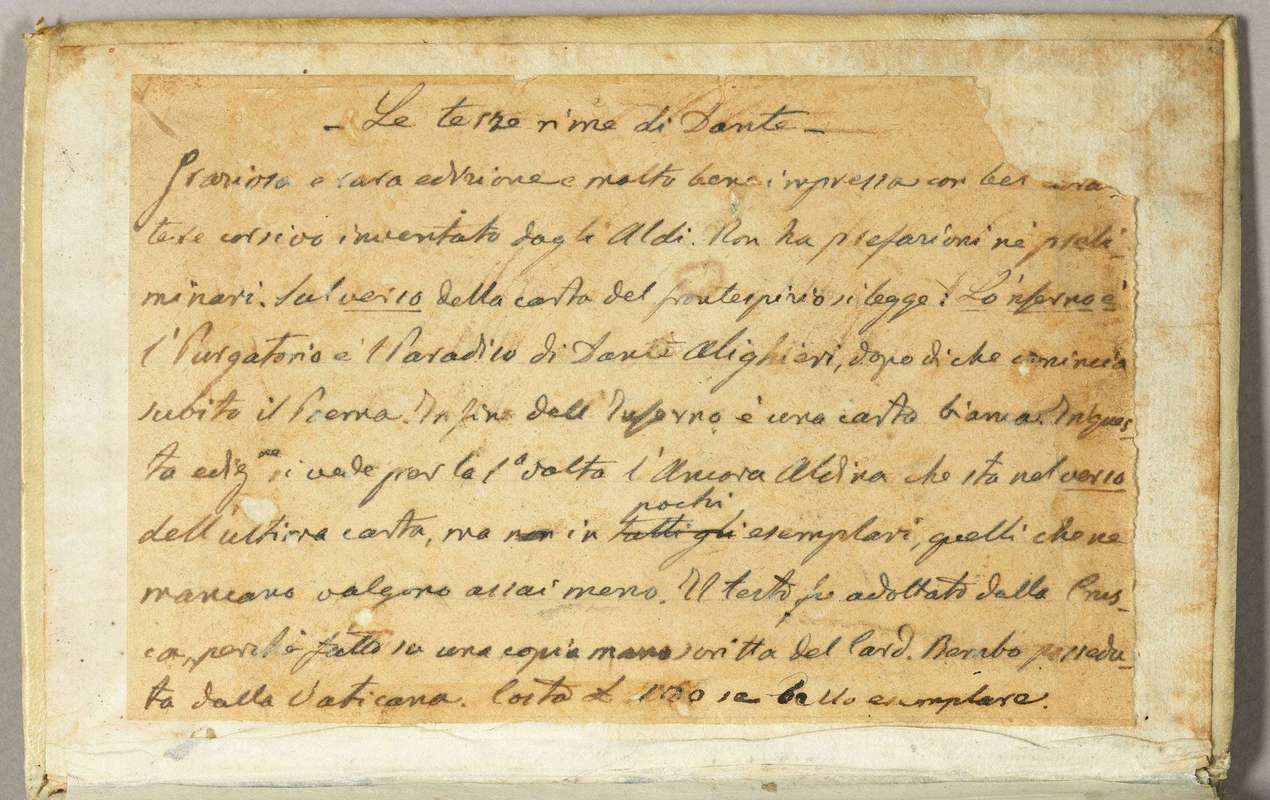 – Le terze rime di Dante –
Graziosa e rara edizione e molto bene impressa con bel carat-
tere corsivo inventato dagli Aldi. Non ha prefazioni nè preli-
minari. Sul verso della carta del frontespizio si legge: Lo 'nferno e'
l' Purgatorio e' l Paradiso di Dante Alighieri, dopo di che comincia
subito il Poema. In fine dell' Inferno è una carta bianca. In ques-
ta ediz.ne si vede per la 1a volta l'Ancora Aldina che sta nel verso
pochi
dell'ultima carta, ma non in tutti gli esemplari, quelli che ne
mancano valgono assai meno. Il testo fu adottato dalla Crus-
ca, perchè fatto su una copia manoscritta del Card. Bembo possedu-
ta dalla Vaticana. Costa £ se bello esemplare.